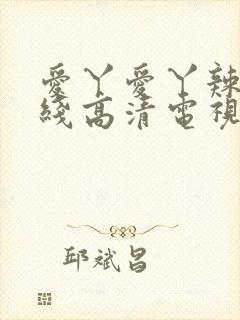 愛丫愛丫辣
綫高清電視
邱斌昌